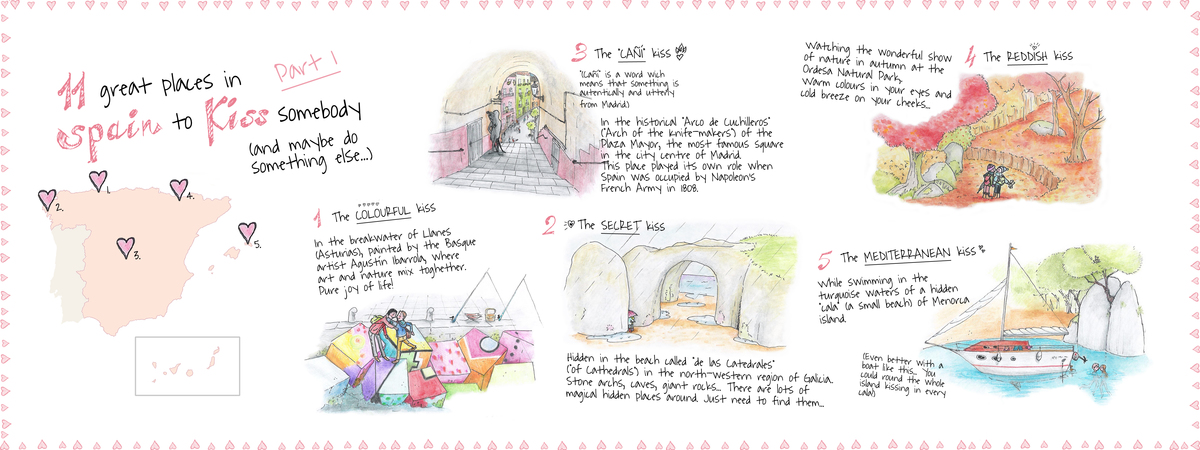 11 great places in
Spain to Kiss somebody
(and maybe do
something else...)
Part 1
1.
2.
3.
4.
5.
1 The COLOURFUL kiss
In the breakwater of Llanes
(Asturias), painted by the Basque
artist Agustín Ibarrola, where
art and nature mix toghether.
Pure joy of life!
2 The SECRET kiss
Hidden in the beach called "de las Catedrales"
("of Cathedrals") in the north-western region of Galicia.
Stone archs, caves, giant rocks... There are lots of
magical hidden places around. Just need to find them...
3 The "CAÑÍ" kiss
"(Cañí" is a word wich
means that something is
autentically and utterly
from Madrid)
In the historical "Arco de Cuchilleros"
("Arch of the knife-makers") of the
Plaza Mayor, the most famous square
in the city centre of Madrid.
This place played its own role when
Spain was occupied by Napoleon's
French Army in 1808.
4 The REDDISH kiss
Watching the wonderful show
of nature in autumn at the
Ordesa Natural Park,
Warm colours in your eyes and
cold breeze on your cheeks...
5 The MEDITERRANEAN kiss
While swimming in the
turquoise waters of a hidden
"cala" (a small beach) of Menorca
island.
(Even better with a
boat like this... You
could round the whole
island kissing in every
cala!)